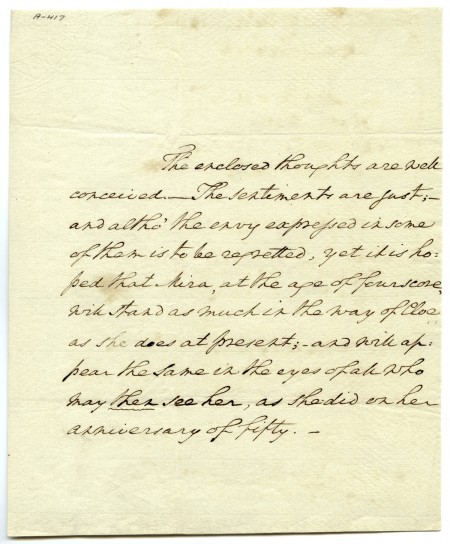 A-417
The enclosed thoughts are well
conceived.— The sentiments are just;—
and altho' the envy expressed in some
of them is to be regretted, yet it is ho:
ped that Mira, at the age of fourscore,
will stand as much in the way of Cloe
as she does at present;—and will ap:
pear the same in the eyes of all who
may then see her, as she did on her
anniversary of fifty.—